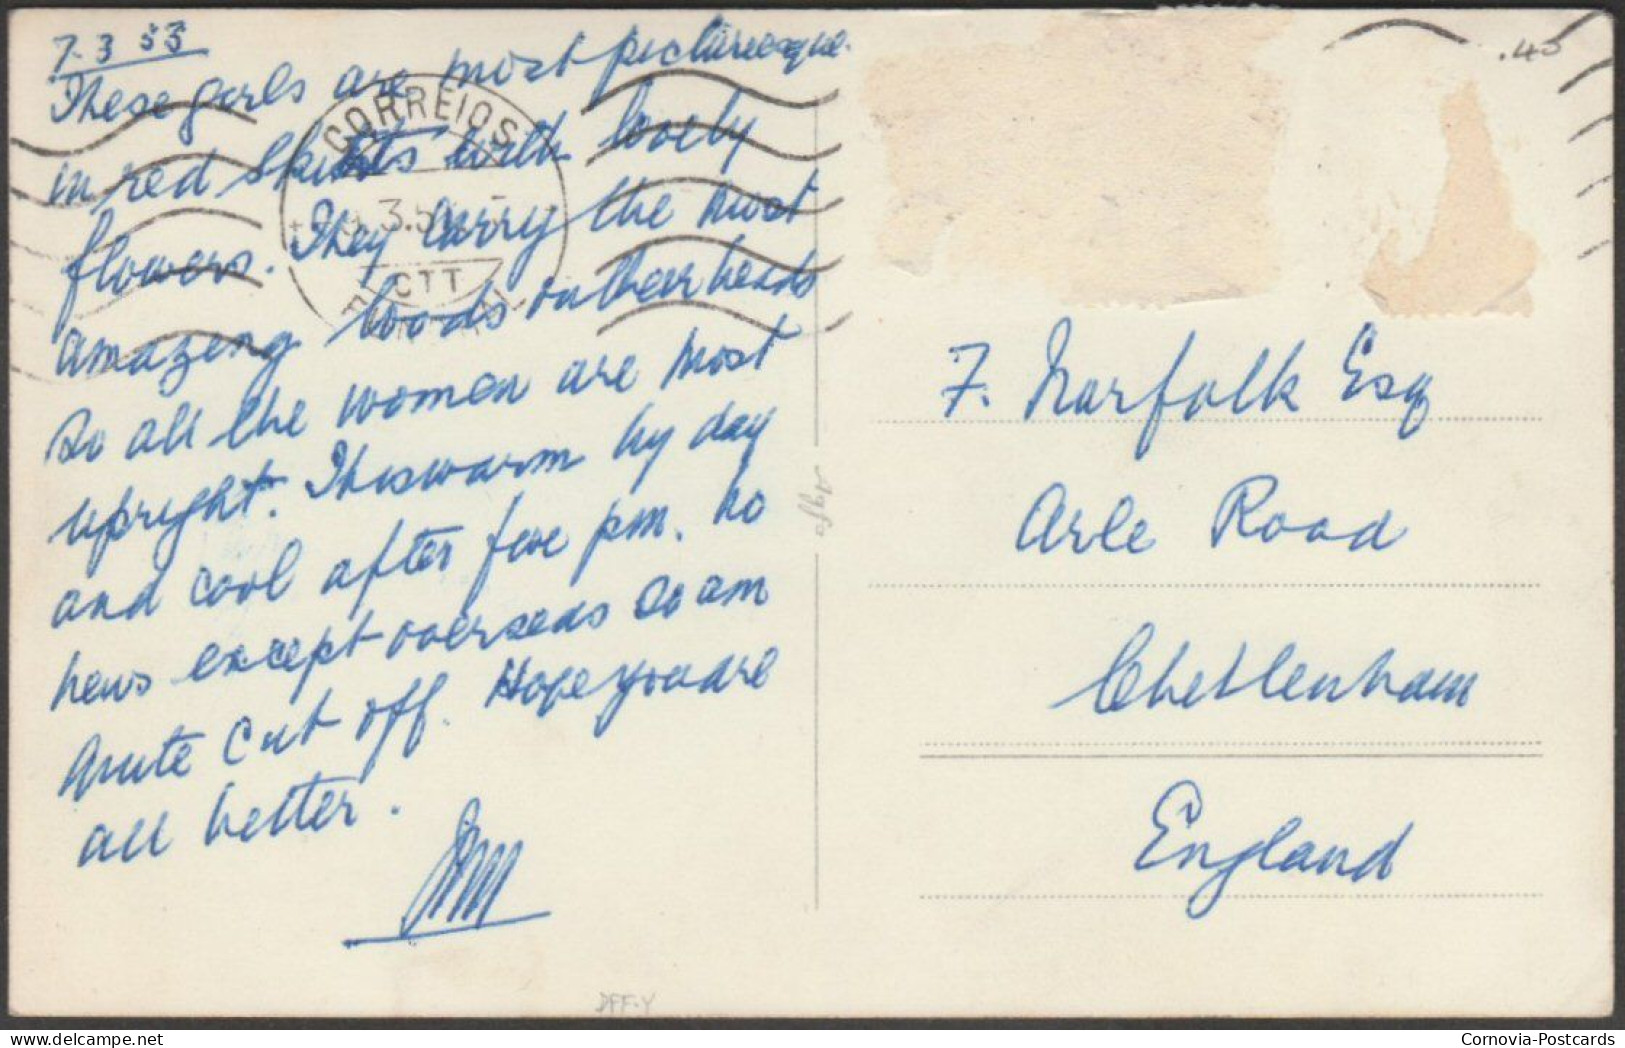 7.3.53
These girls are most picturesque
in red skirts with lovely
flowers. They carry the most
amazing loads on their heads
so all the women are most
upright. It is warm by day
and cool after five pm. No
news except overseas so am
quite cut off. Hope you are
all better.
CORREIOS
3.5
CTT
.40
F. Norfolk Esq
Arle Road
Cheltenham
England
Agfa
DFF-Y
Cornovia-Postcards